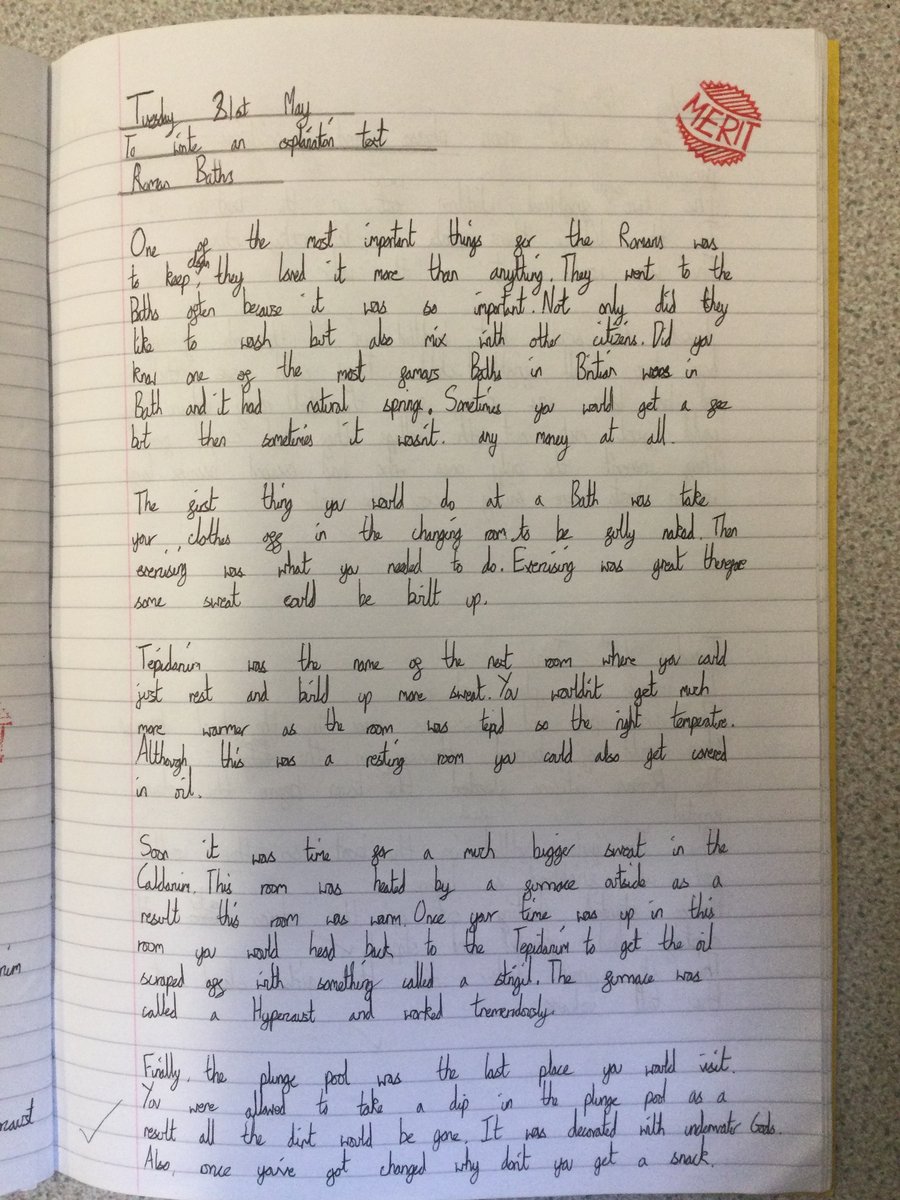 Tuesday 31st May
MERIT
To write an explanation text
Roman Baths
One of the most important things for the Romans was
to keep clean, they loved it more than anything. They went to the
Baths often because it was so important. Not only did they
like to wash but also mix with other citizens. Did you
know one of the most famous Baths in Britian was in
Bath and it had natural springs. Sometimes you would get a fee
but then sometimes it wasn't any money at all.
The first thing you would do at a Bath was take
your clothes off in the changing room to be fully naked. Then
exercising was what you needed to do. Exercising was great therefore
some sweat could be built up.
Tepidarium was the name of the next room where you could
just rest and build up more sweat. You wouldn't get much
more warmer as the room was tepid so the right temperature.
Although, this was a resting room you could also get covered
in oil.
Soon it was time for a much bigger sweat in the
Caldarium. This room was heated by a furnace outside as a
result this room was warm. Once your time was up in this
room you would head back to the Tepidarium to get the oil
scraped off with something called a strigil. The furnace was
called a Hypercaust and worked tremendously.
Finally, the plunge pool was the last place you would visit.
You were allowed to take a dip in the plunge pool as a
result all the dirt would be gone. It was decorated with underwater Gods.
Also, once you've got changed why don't you get a snack.